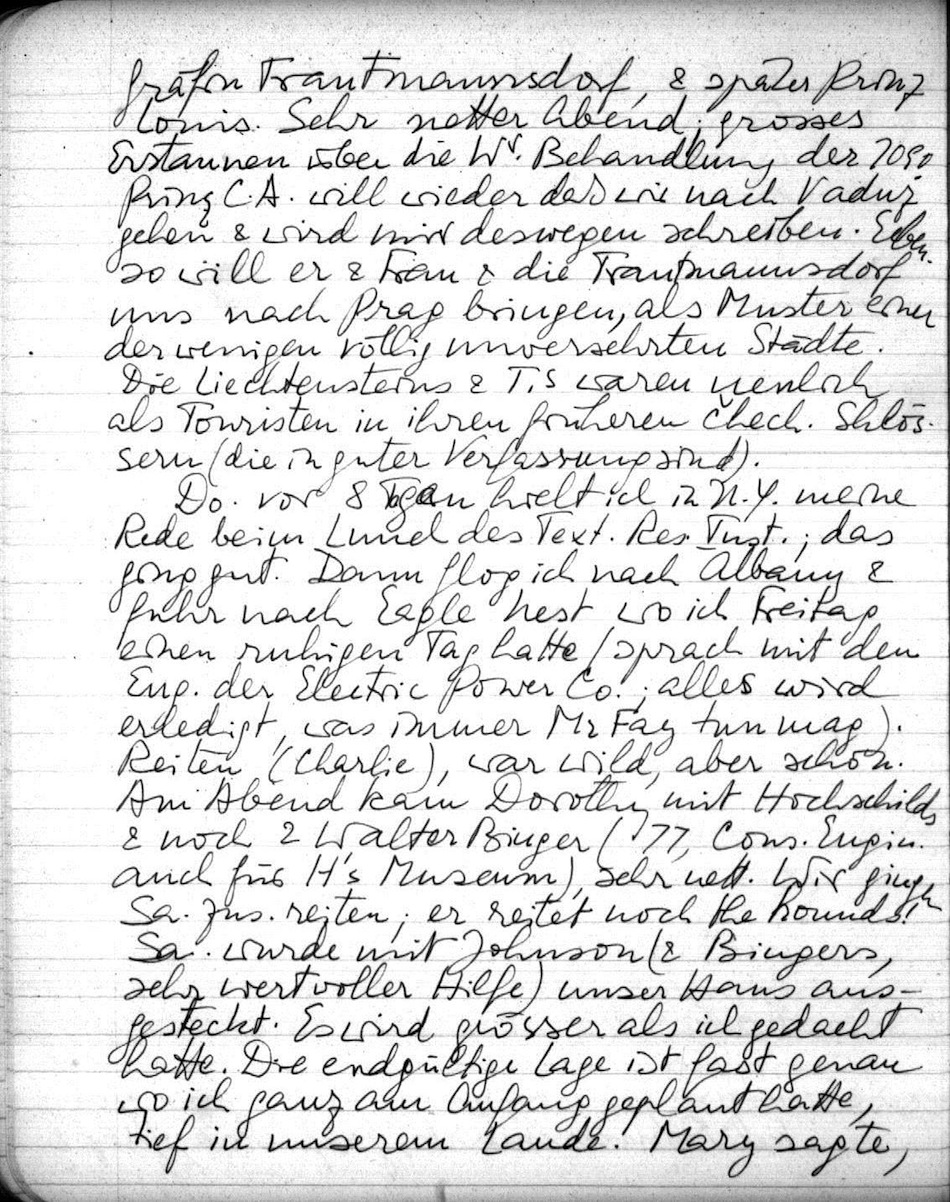 Gräfin Trautmannsdorf, & später Prinz
Louis. Sehr netter Abend; grosses
Erstaunen über die Wr. Behandlung der
Prinz C.A. will wieder dass wir nach Vaduz
gehen & wird mir deswegen schreiben. Eben-
so will er & Frau & die Trautmannsdorf
uns nach Prag bringen, als Muster einer
der wenigen völlig unversehrten Städte.
Die Liechtensteins & T.s waren nemlich
als Touristen in ihren früheren Čhech. Shlös-
sern (die in guter Verfassung sind).
Do. vor 8 Tagen hielt ich in N.Y. meine
Rede beim Lunch des Text. Res. Inst.; das
ging gut. Dann flog ich nach Albany &
fuhr nach Eagle Nest wo ich Freitag
einen ruhigen Tag hatte (sprach mit den
Eng. der Electric Power Co.; alles wird
erledigt, was immer Mr Fay tun mag).
Reiten (Charlie), war wild, aber schön.
Am Abend kam Dorothy mit Hochschilds
& noch 2 Walter Binger ('77, Cons. Engin.
auch für H's Museum), sehr nett. Wir gingen
Sa. zus. reiten; er reitet noch the hounds!
Sa. wurde mit Johnson (& Bingers,
sehr wertvoller Hilfe) unser Haus aus-
gesteckt. Es wird grösser als ich gedacht
hatte. Die endgültige Lage ist fast genau
wo ich ganz am Anfang geplant hatte,
tief in unserem Lande. Mary sagte,